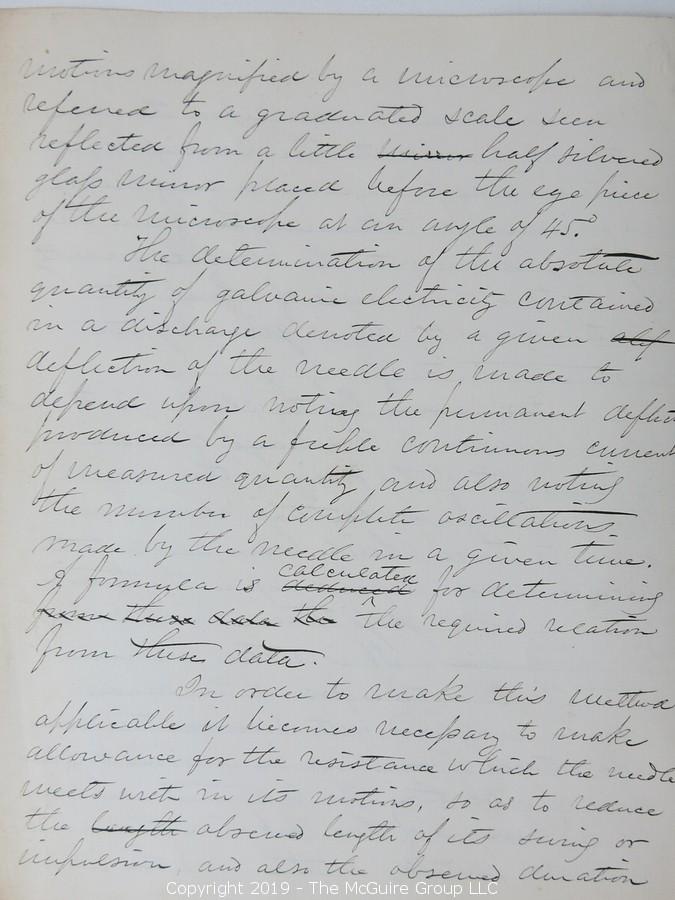 motions magnified by a microscope and
referred to a graduated scale seen
reflected from a little mirror half silvered
glass mirror placed before the eye piece
of the microscope at an angle of 45.°
The determination of the absolute
quantity of galvanic electricity contained
in a discharge denoted by a given
deflection of the needle is made to
depend upon noting the permanent deflection
produced by a feeble continuous current
of measured quantity and also noting
the number of complete oscillations
made by the needle in a given time.
calculated
A formula is deduced for determining
from these data the ^ the required relation
from these data.
In order to make this method
applicable it becomes necessary to make
allowance for the resistance which the needle
meets with in its motions, so as to reduce
the length observed length of its swing or
impulsion, and also the observed duration
Copyright 2019 - The McGuire Group LLC